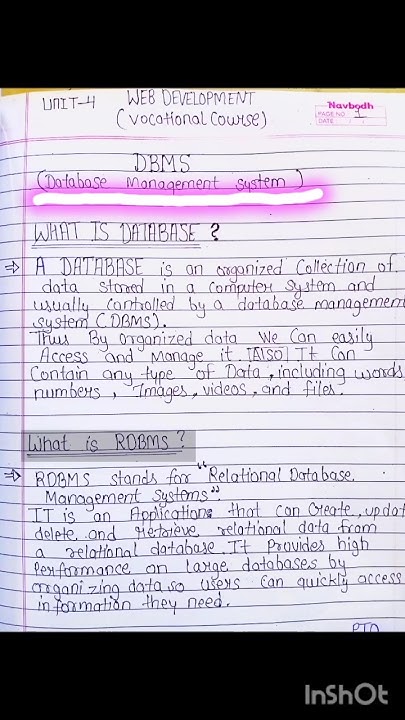 UNIT-4 WEB DEVELOPMENT
(Vocational Course)
Navbodh
PAGE NO 1
DATE / /
DBMS
(Database Management system)
WHAT IS DATABASE ?
⇒ A DATABASE is an organized Collection of
data stored in a computer system and
usually Controlled by a database management
system (DBMS).
Thus By organized data We Can easily
Access and Manage it. ALSO It Can
Contain any type of Data, including words
numbers, Images, videos, and files.
What is RDBMS ?
⇒ RDBMS stands for "Relational Database
Management Systems"
IT is an Application that can Create, updat
delete and Retrieve relational data from
a relational database. It Provides high
Performance on large databases by
organizing data, so users Can quickly access
information they need.
PTO
InShOt